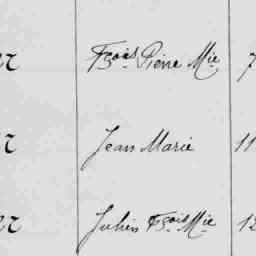 Fçois Pierre Mie 7
Jean Marie 11
Julien Fçois Mie 12